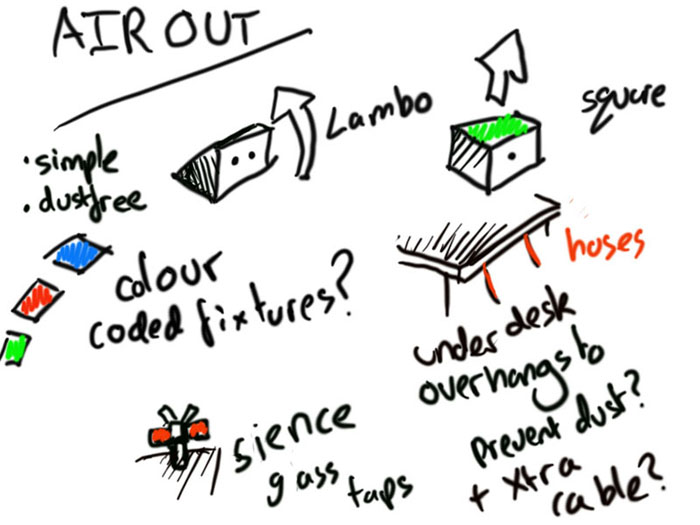 AIR OUT
Lambo
square
• simple
• dustfree
colour
coded fixtures?
hoses
under desk
overhangs to
prevent dust?
+ xtra
cable?
sience
gass
taps